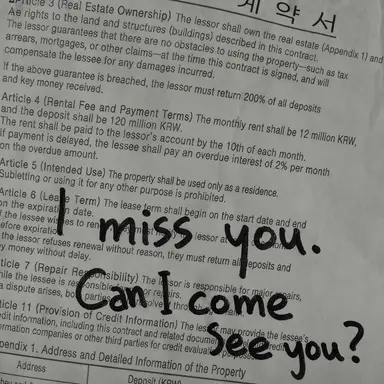 계 약 서
Article 3 (Real Estate Ownership) The lessor shall own the real estate (Appendix 1) and
All rights to the land and structures (buildings) described in this contract.
The lessor guarantees that there are no obstacles to using the property—such as tax
arrears, mortgages, or other claims—at the time this contract is signed, and will
compensate the lessee for any damages incurred.
If the above guarantee is breached, the lessor must return 200% of all deposits
and key money received.
Article 4 (Rental Fee and Payment Terms) The monthly rent shall be 12 million KRW,
and the deposit shall be 120 million KRW.
The rent shall be paid to the lessor's account by the 10th of each month.
If payment is delayed, the lessee shall pay an overdue interest of 2% per month
on the overdue amount.
Article 5 (Intended Use) The property shall be used only as a residence.
Subletting or using it for any other purpose is prohibited.
Article 6 (Lease Term) The lease term shall begin on the start date and end
on the expiration date.
If the lessee wishes to renew
the lessor at
before expiration
the lessor refuses renewal without reason, they must return all deposits and
key money without delay.
I miss you.
Can I come
see you?
Article 7 (Repair Responsibility) The lessor is responsible for major repairs,
while the lessee is responsible for repairs.
a dispute arises, both parties
Article 11 (Provision of Credit Information) The lessor may provide the lessee's
credit information, including this contract and related documents
information companies or other third parties for credit evaluation purposes
Appendix 1. Address and Detailed Information of the Property
Address
Deposit (KRW)